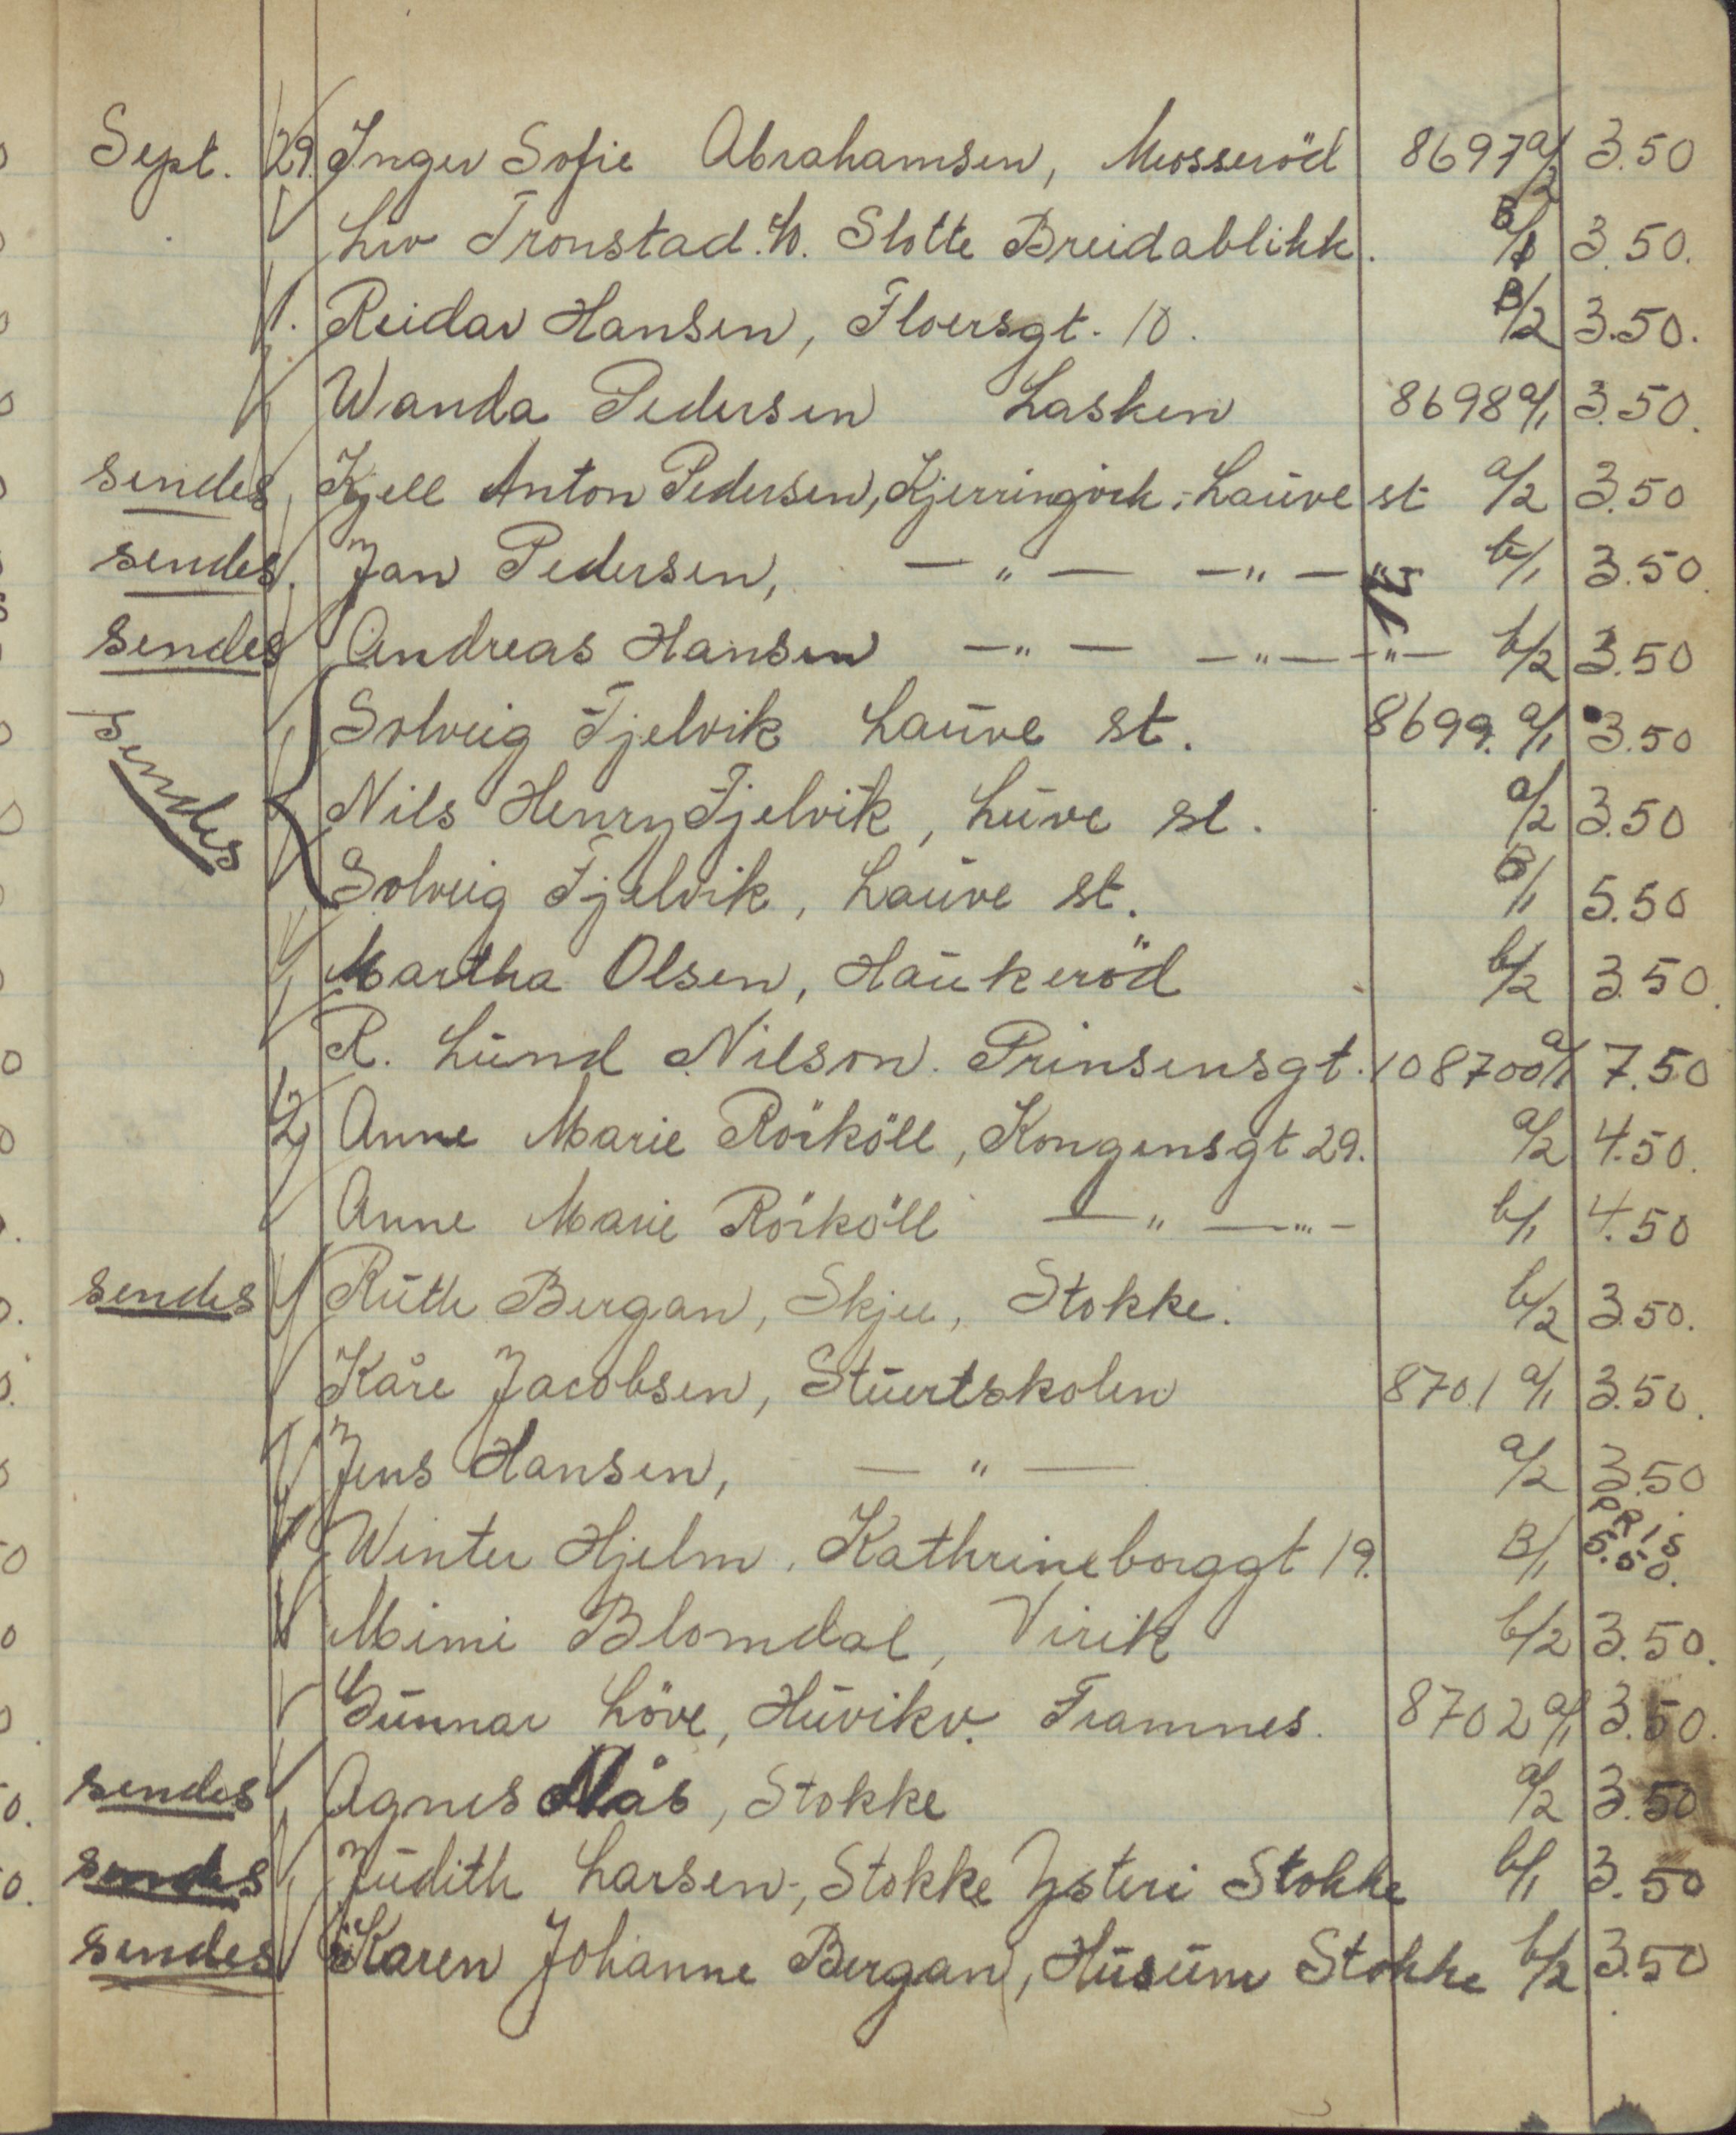 Sept. 29. Inger Sofie Abrahamsen, Mosseröd 8697 a/2 3.50
Liv Tronstad. %. Slotte Breidablikk. B/1 3.50.
1. Reidar Hansen, Floersgt. 10. B/2 3.50.
Wanda Pedersen Lasken 8698 a/1 3.50.
sendes Kjell Anton Pedersen, Kjerringvik, Lauve st a/2 3.50
sendes. Jan Pedersen, — " — — " — " b/1 3.50
sendes Andreas Hansen — " — — " — " — b/2 3.50
Solveig Fjelvik Lauve st. 8699. a/1 3.50
sendes Nils Henry Fjelvik, Luve st. a/2 3.50
Solveig Fjelvik, Lauve st. B/1 5.50
Martha Olsen, Haukeröd b/2 3.50
R. Lund Nilson. Prinsensgt. 10 8700 a/1 7.50
2 Anne Marie Röiköll, Kongensgt 29. a/2 4.50.
Anne Marie Röiköll — " — " — b/1 4.50
sendes Ruth Bergan, Skjee, Stokke. b/2 3.50.
Kåre Jacobsen, Stuertskolen 8701 a/1 3.50.
Jens Hansen, — " — a/2 3.50
Winter Hjelm. Kathrineborggt 19. B/1 PRIS 5.50.
Mimi Blomdal, Virik b/2 3.50.
Gunnar Löve, Huvikv. Framnes. 8702 a/1 3.50.
sendes Agnes Nås, Stokke a/2 3.50
sendes Judith Larsen, Stokke Ysteri Stokke b/1 3.50
sendes Karen Johanne Bergan, Husum Stokke b/2 3.50